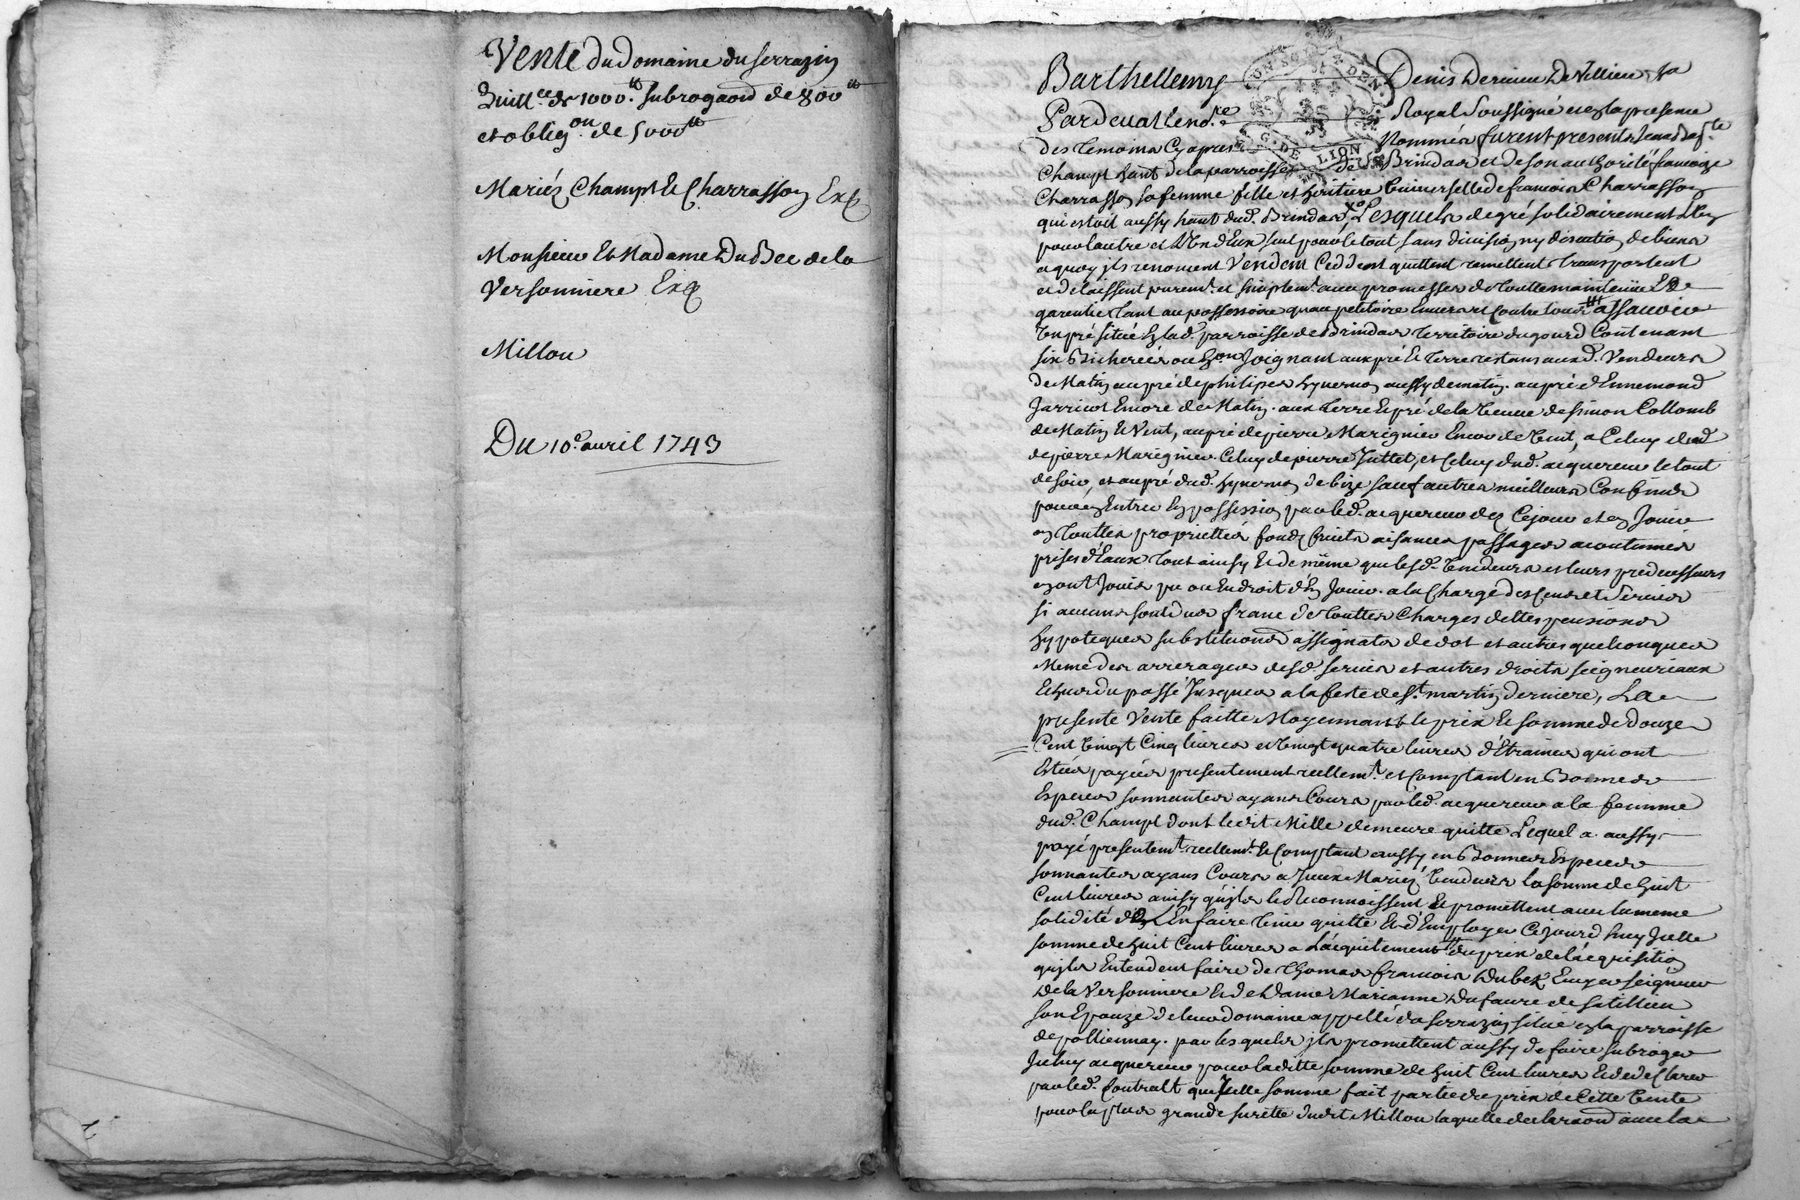 Vente du Domaine du Serrazin
quitt.ce de 1000.tt subrogaon de 800tt
et oblig.on de 5000tt
Mariés Champt & Charrasson Exp
Monsieur Et Madame Du Bec de la
Versonniere Exp
Millou
Du 10.e avril 1743
Barthellemy Denis Derieu De Villieu
Pardevant le no.re Royal Soussigné et en la presence
UN SOL G. DE LION DEN.
des temoins Cy apres Nommés furent presents
Champt hant de la parroisse de Brindas et de son authorité francoize
Charrasson sa femme fille et heritiere universelle de francois Charrasson
qui estoit aussy hant dud. Brindas Lesquels de gré solidairement L'un
pour l'autre et L'un d'Eux seul pour le tout sans division ny discution de biens
a quoy ils renoncent Vendent Ceddent quittent remettent transportent
et delaissent purem.t et simplem.t avec promesse de toutte maintenue &
garentie tant au possessoire qu'au petitoire Envers et Contre tous assavoir
un pré situé En lad. parroisse de Brindas territoire du gourd Contenant
six Bicherées ou Environ Joignant aux pré & terre restans auxd. Vendeurs
de Matin au pré de philipes hyvernon aussy de matin. au pré d'Ennemond
Jarricot Encore de Matin. aux terre & pré de la veuve de Simon Collomb
de Matin & Vent, au pré de pierre Marignier Encor de vent, a Celuy dud.
de pierre Marignier. Celuy de pierre Juttet, et Celuy dud. acquereur le tout
de soir, et au pré dud. hyvernon de bize sauf autres meilleurs Confins
pour en Entrer En possession par led. acquereur des Cejour et en Jouir
en touttes proprietés fonds fruits aisances passages acoutumés
prises d'Eaux tout ainsy & de même que lesd. vendeurs et leurs predecesseurs
en ont Jouis pu ou En droit d'En Jouir. a la Charge des Cens et Servis
si aucuns sont dus franc de touttes Charges dettes pensions
hypoteques substitutions assignats de dot et autres quelconques
Meme des arrerages desd. servis et autres droits seigneuriaux
Echus du passé Jusques a la feste de St. martin derniere, La
presente Vente faitte Moyennant le prix & somme de douze
Cent vingt Cinq livres et vingt quatre livres d'Etraines qui ont
Estées payées presentement reellem.t et Comptant en Bonnes
Especes sonnantes ayans Cours par led. acquereur a la femme
dud. Champt dont ledit Mille demeure quitte Lequel a aussy
payé presentem.t reellem.t & Comptant aussy en Bonnes Especes
sonnantes ayans Cours a Iceux Mariés vendeurs la somme de huit
Cent livres ainsy qu'ils le reconnoissent & promettent avec la meme
solidité de L'En faire tenir quitte & d'Employer Cejourd'huy Icelle
somme de huit Cent livres a L'acquittement du prix de l'acquisition
qu'ils Entendent faire de thomas francois Dubek Ecuyer seigneur
De la Versonniere & de Dame Marianne Dufaure de Satillieu
son Epouze de leur domaine appellé du Serrazin situé en la parroisse
de pollionnay. par lesquels ils promettent aussy de faire subroger
Iceluy acquereur pour laditte somme de huit Cent livres & de declarer
par led. Contralt que Icelle somme fait partie du prix de Cette vente
pour la plus grande surette dudit Millou laquelle declaraon avec la